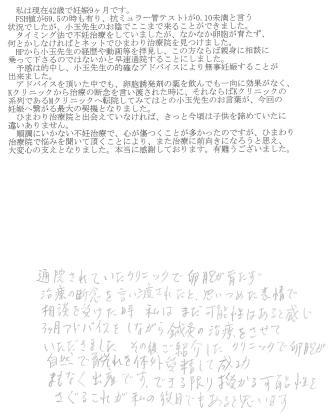 私は現在42歳で妊娠9ヶ月です。
FSH値が69.5の時も有り、抗ミュラー管テストが0.10未満と言う
状況でしたが、小玉先生のお陰でここまで来ることができました。
タイミング法で不妊治療をしていましたが、なかなか卵胞が育たず、
何とかしなければとネットでひまわり治療院を見つけました。
HPから小玉先生の経歴や動画等を拝見し、この方ならば親身に相談に
乗って下さるのではないかと早速通院することにしました。
予感は的中し、小玉先生の的確なアドバイスにより無事妊娠することが
出来ました。
アドバイスを頂いた中でも、卵胞誘発剤の薬を飲んでも一向に効果がなく、
Kクリニックから治療の断念を言い渡された時に、それならばKクリニックの
系列であるMクリニックへ転院してみてはとの小玉先生のお言葉が、今回の
妊娠へ繋がる最大の飛躍となりました。
ひまわり治療院と出会えていなければ、きっと今頃は子供を諦めていたに
違いありません。
順調にいかない不妊治療で、心が傷つくことが多かったのですが、ひまわり
治療院で悩みを聞いて頂くことにより、また治療に前向きになろうと思え、
大変心の支えとなりました。本当に感謝しております。有難うございました。
通院されていたクリニックで卵胞が育たず
治療の断念を言い渡されたと、思いつめた表情で
相談を受けた時 私は まだ可能性はあると感じ
アドバイスをしながら鍼灸の治療をさせて
いただきました その後ご紹介した クリニックで卵胞が
自然で 体外受精して成功
まもなく出産です。できる限り 授かる可能性を
さぐる これが 私の役目でもあると思います